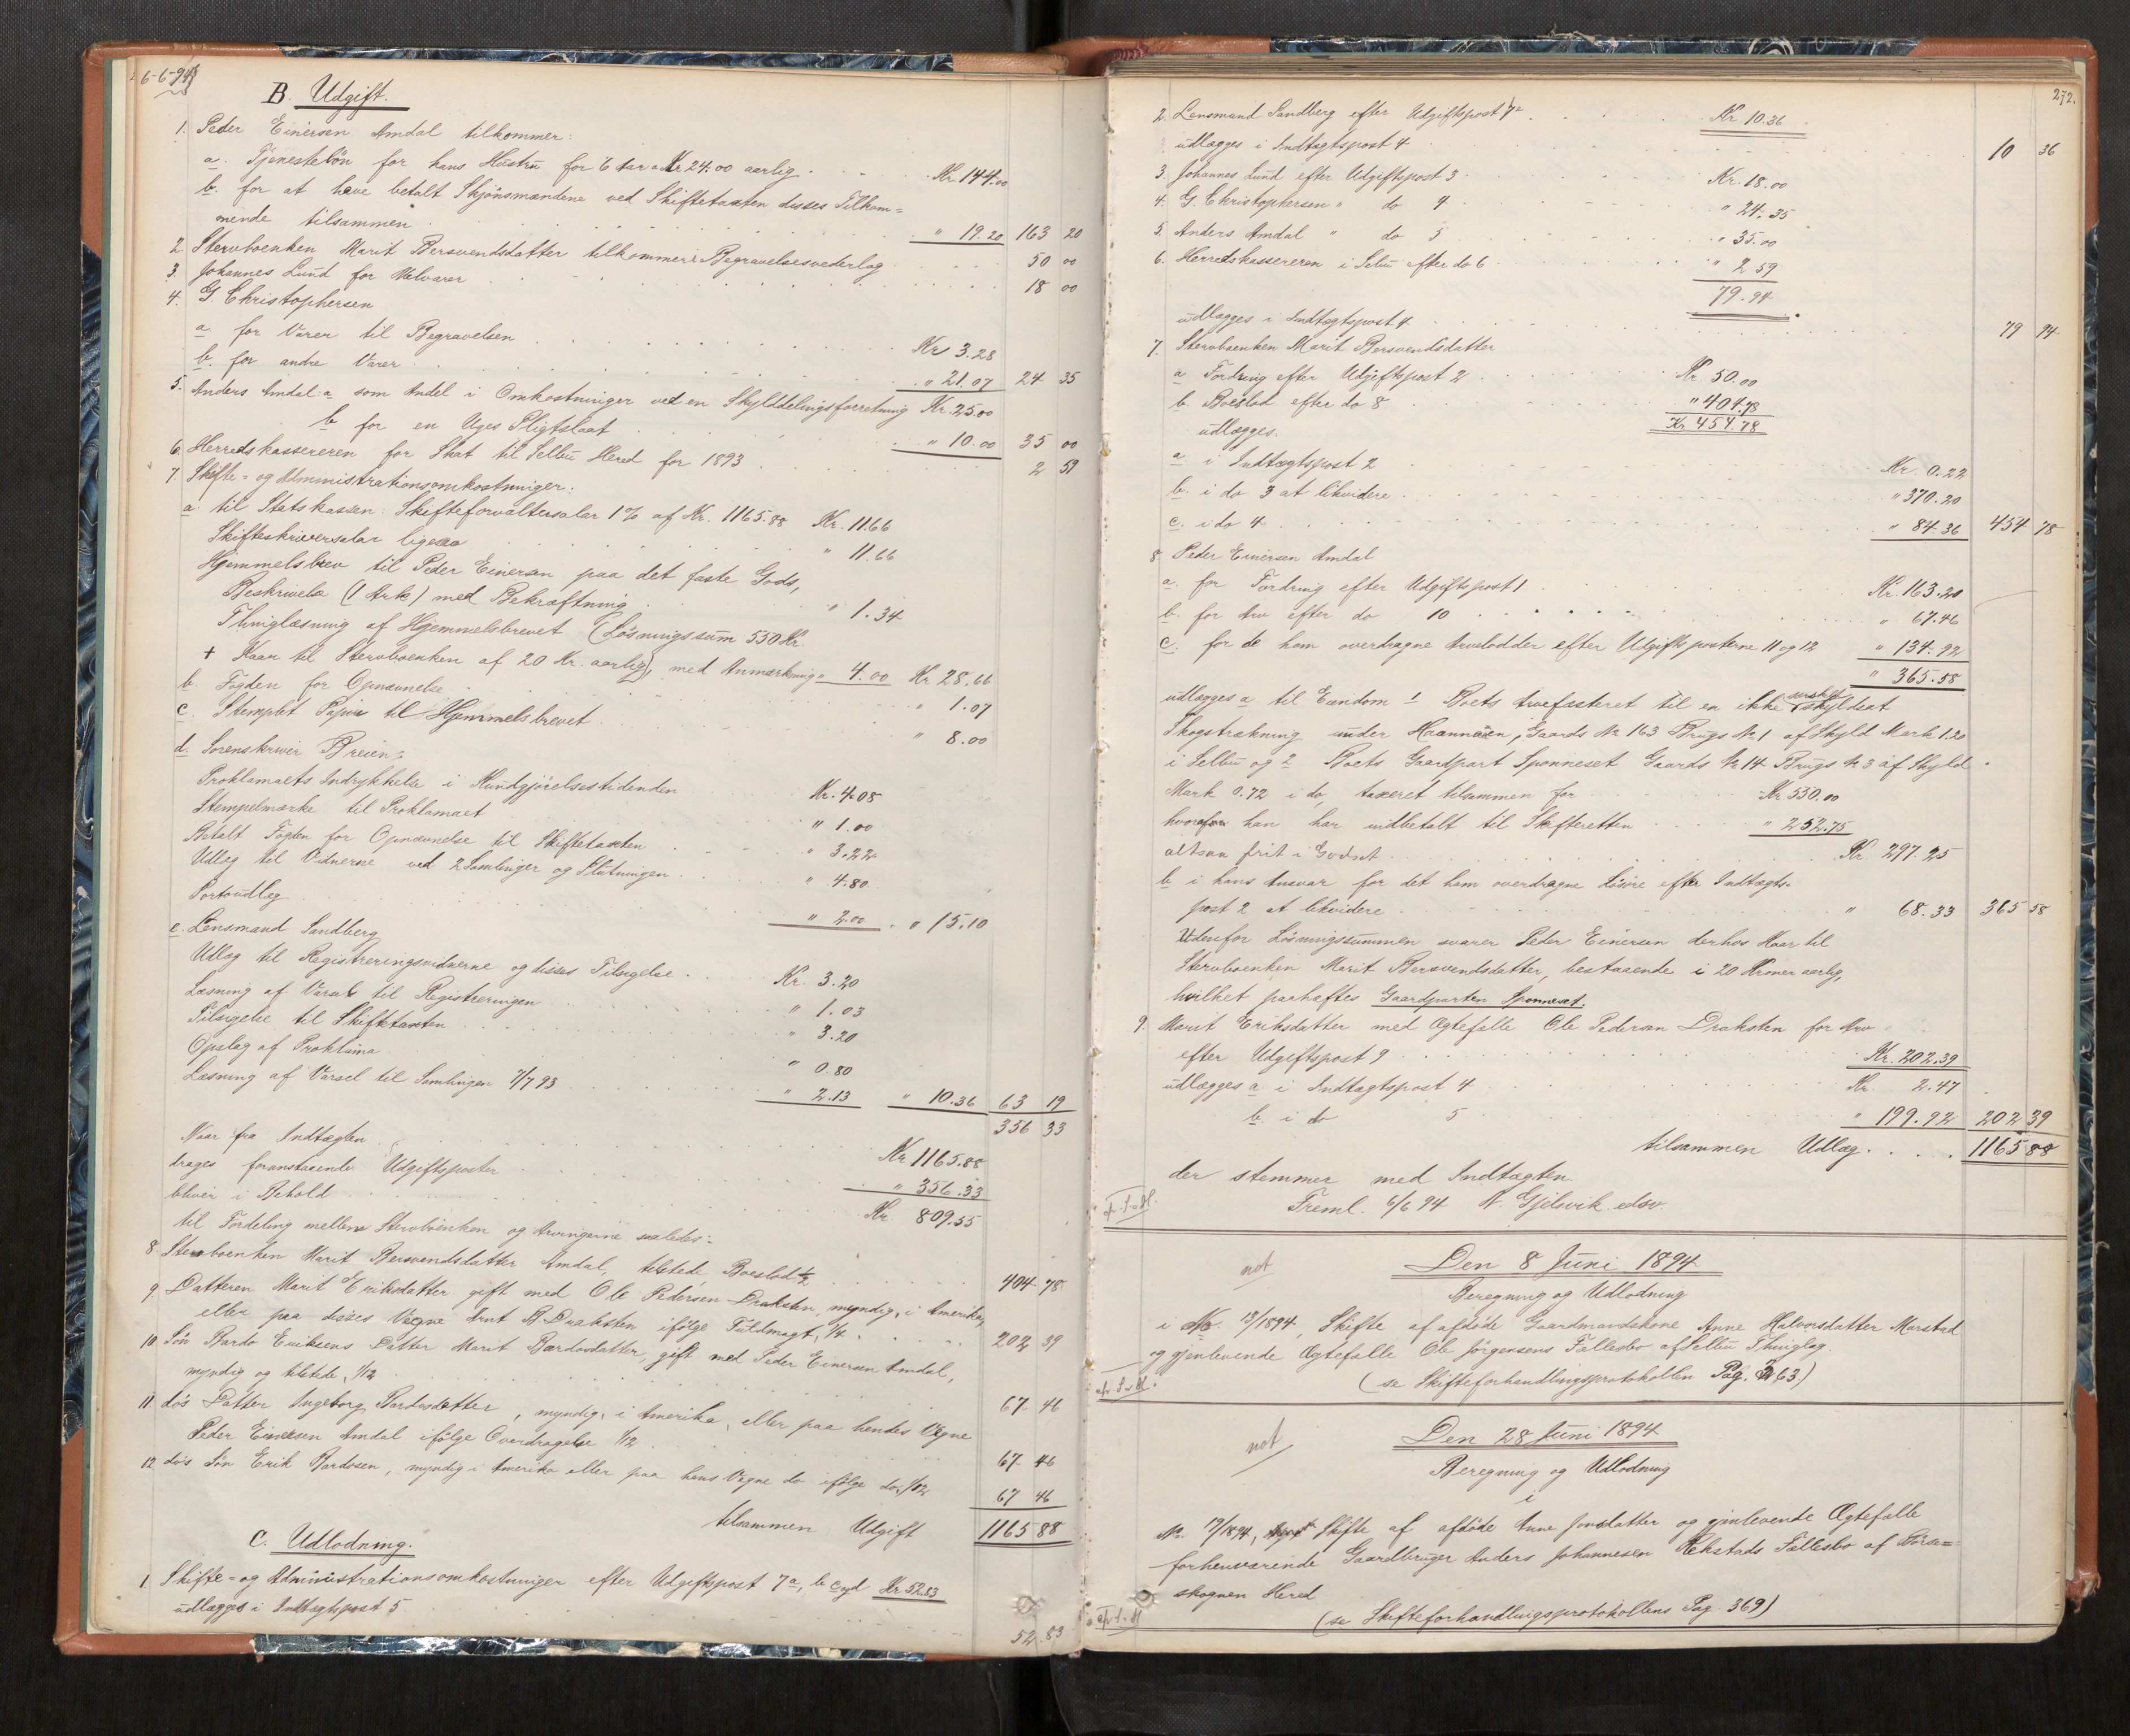 6-6-94
B. Udgift.
1. Peder Einersen Amdal tilkommer:
a. Tjenesteløn for hans Hustru for 6 Aar a Kr 24.00 aarlig . . Kr. 144.00
b. for at have betalt Skjønsmændene ved Skiftetaxten disses Tilkom=
mende tilsammen . . " 19.20 163 20
2. Stervboenken Marit Bersvendsdatter tilkommer i Begravelsesvederlag . . 50 00
3. Johannes Lund for Uldvarer . . 18 00
4. G. Christophersen
a for Varer til Begravelsen . . Kr 3.28
b. for andre Varer . . " 21.07 24 35
5. Anders Amdal: a som Andel i Omkostninger ved en Skylddelingsforretning Kr. 25.00
b for en Uges Pligtslaat . . " 10.00 35 00
6. Herredskassereren for Skat til Selbu Herred for 1893 . . 2 59
7. Skifte= og Administrationsomkostninger:
a. til Statskassen: Skifteforvaltersalar 1% af Kr. 1165.88 Kr. 11.66
Skifteskriversalar ligesaa . . " 11.66
Hjemmelsbrev til Peder Einersen paa det faste Gods,
Beskrivelse (1 Ark) med Bekræftning . . " 1.34
Thinglæsning af Hjemmelsbrevet (Løsningssum 550 Kr.
+ Kaar til Stervboenken af 20 Kr. aarlig), med Anmærkning " 4.00 Kr 28.66
b. Fogden for Opnævnelse . . " 1.07
c. Stemplet Papir til Hjemmelsbrevet . . " 8.00
d. Sorenskriver Breien:
Proklamaets Indrykkelse i Kundgjørelsestidenden Kr. 4.08
Stempelmærke til Proklamaet " 1.00
Betalt Fogden for Opnævnelse til Skiftetaxten " 3.22
Udlæg til Vidnerne ved 2 Samlinger og Slutningen " 4.80
Portoudlæg . . " 2.00 " 15.10
e. Lensmand Sandberg
Udlæg til Registreringsvidnerne og disses Tilsigelse Kr. 3.20
Læsning af Varsel til Registreringen " 1.03
Tilsigelse til Skiftetaxten " 3.20
Opslag af Proklama " 0.80
Læsning af Varsel til Samlingen 7/7 93 " 2.13 " 10.36 63 19
356 33
Naar fra Indtægten . . Kr 1165.88
drages foranstaaende Udgiftsposter " 356.33
bliver i Behold . . Kr. 809.55
til Fordeling mellem Stervboenken og Arvingerne saaledes:
8. Stervboenken Marit Bersvendsdatter Amdal, tilstede, Boeslod 1/2 404 78
9. Datteren Marit Eriksdatter gift med Ole Pedersen Draksten, myndig, i Amerika,
eller paa disses Vegne Arnt B. Draksten ifølge Fuldmagt, 1/4 202 39
10. Søn Bardo Eriksens Datter Marit Bardosdatter, gift med Peder Einersen Amdal,
myndig og tilstede, 1/12 67 46
11 do's Datter Ingeborg Bardosdatter, myndig, i Amerika, eller paa hendes Vegne
Peder Einersen Amdal ifølge Overdragelse 1/12 67 46
12 do's Søn Erik Bardosen, myndig i Amerika eller paa hans Vegne do ifølge do, 1/12 67 46
tilsammen Udgift 1165 88
C. Udlodning.
1. Skifte= og Administrationsomkostninger efter Udgiftspost 7 a, b c og d Kr 52.83
udlægges i Indtægtspost 5 . . 52.83
272.
2. Lensmand Sandberg efter Udgiftspost 7e . . Kr. 10.36
udlægges i Indtægtspost 4 . . 10 36
3. Johannes Lund efter Udgiftspost 3 . . Kr. 18.00
4. G. Christophersen " do 4 . . " 24.35
5. Anders Amdal " do 5 . . " 35.00
6. Herredskassereren i Selbu efter do 6 . . " 2 59
79.94
udlægges i Indtægtspost 4 . . 79 94
7. Stervboenken Marit Bersvendsdatter
a Fordring efter Udgiftspost 2 . . Kr. 50.00
b. Boeslod efter do 8 . . " 404.78
udlægges. Kr 454.78
a i Indtægtspost 2 . . Kr. 0.22
b. i do 3 at likvidere . . " 370.20
c. i do 4 . . " 84.36 454 78
8 Peder Einersen Amdal
a. for Fordring efter Udgiftspost 1 . . Kr. 163.20
b. for Arv efter do 10 . . " 67.46
c. for de ham overdragne Arvelodder efter Udgiftsposterne 11 og 12 " 134.92
" 365.58
udlægges a til Eiendom 1 Boets Arvefæsteret til en ikke særskilt skyldsat
Skogstrækning under Haannaaen, Gaards No 163 Brugs No 1 af Skyld Mark 1.20
i Selbu og 2 Boets Gaardpart Sponneset Gaards No 14 Brugs No 3 af Skyld
Mark 0.72 i do, taxeret tilsammen for . . Kr 550.00
hvorfor han har indbetalt til Skifteretten . . " 252.75
altsaa frit i Godset . . Kr. 297.25
b i hans Ansvar for det ham overdragne Løsøre efter Indtægts=
post 2 at likvidere . . " 68.33 365 58
Udenfor Løsningssummen svarer Peder Einersen derhos Kaar til
Stervboenken Marit Bersvendsdatter, bestaaende i 20 Kroner aarlig,
hvilket paaheftes Gaardparten Sponneset.
9. Marit Eriksdatter med Ægtefælle Ole Pedersen Draksten for Arv
efter Udgiftspost 9 . . Kr. 202.39
udlægges a i Indtægtspost 4 . . Kr. 2.47
b. i do 5 . . " 199.92 202 39
tilsammen Udlæg . . . . 1165 88
der stemmer med Indtægten
Freml. 6/6 94 N. Gjelsvik edsv.
Den 8 Juni 1894
not
Beregning og Udlodning
i No. 18/1894, Skifte af afdøde Gaardmandskone Anne Halvorsdatter Marstad
og gjenlevende Ægtefælle Ole Jørgensens Fællesbo af Selbu Thinglag.
(se Skifteforhandlingsprotokollen Pag. 263)
Den 28 Juni 1894
not
Beregning og Udlodning
i
No. 19/1894, Skifte af afdøde Anne Jonsdatter og gjenlevende Ægtefælle
forhenværende Gaardbruger Anders Johannesen Rekstads Fællesbo af Børse=
skognen Herred
(se Skifteforhandlingsprotokollens Pag. 369)